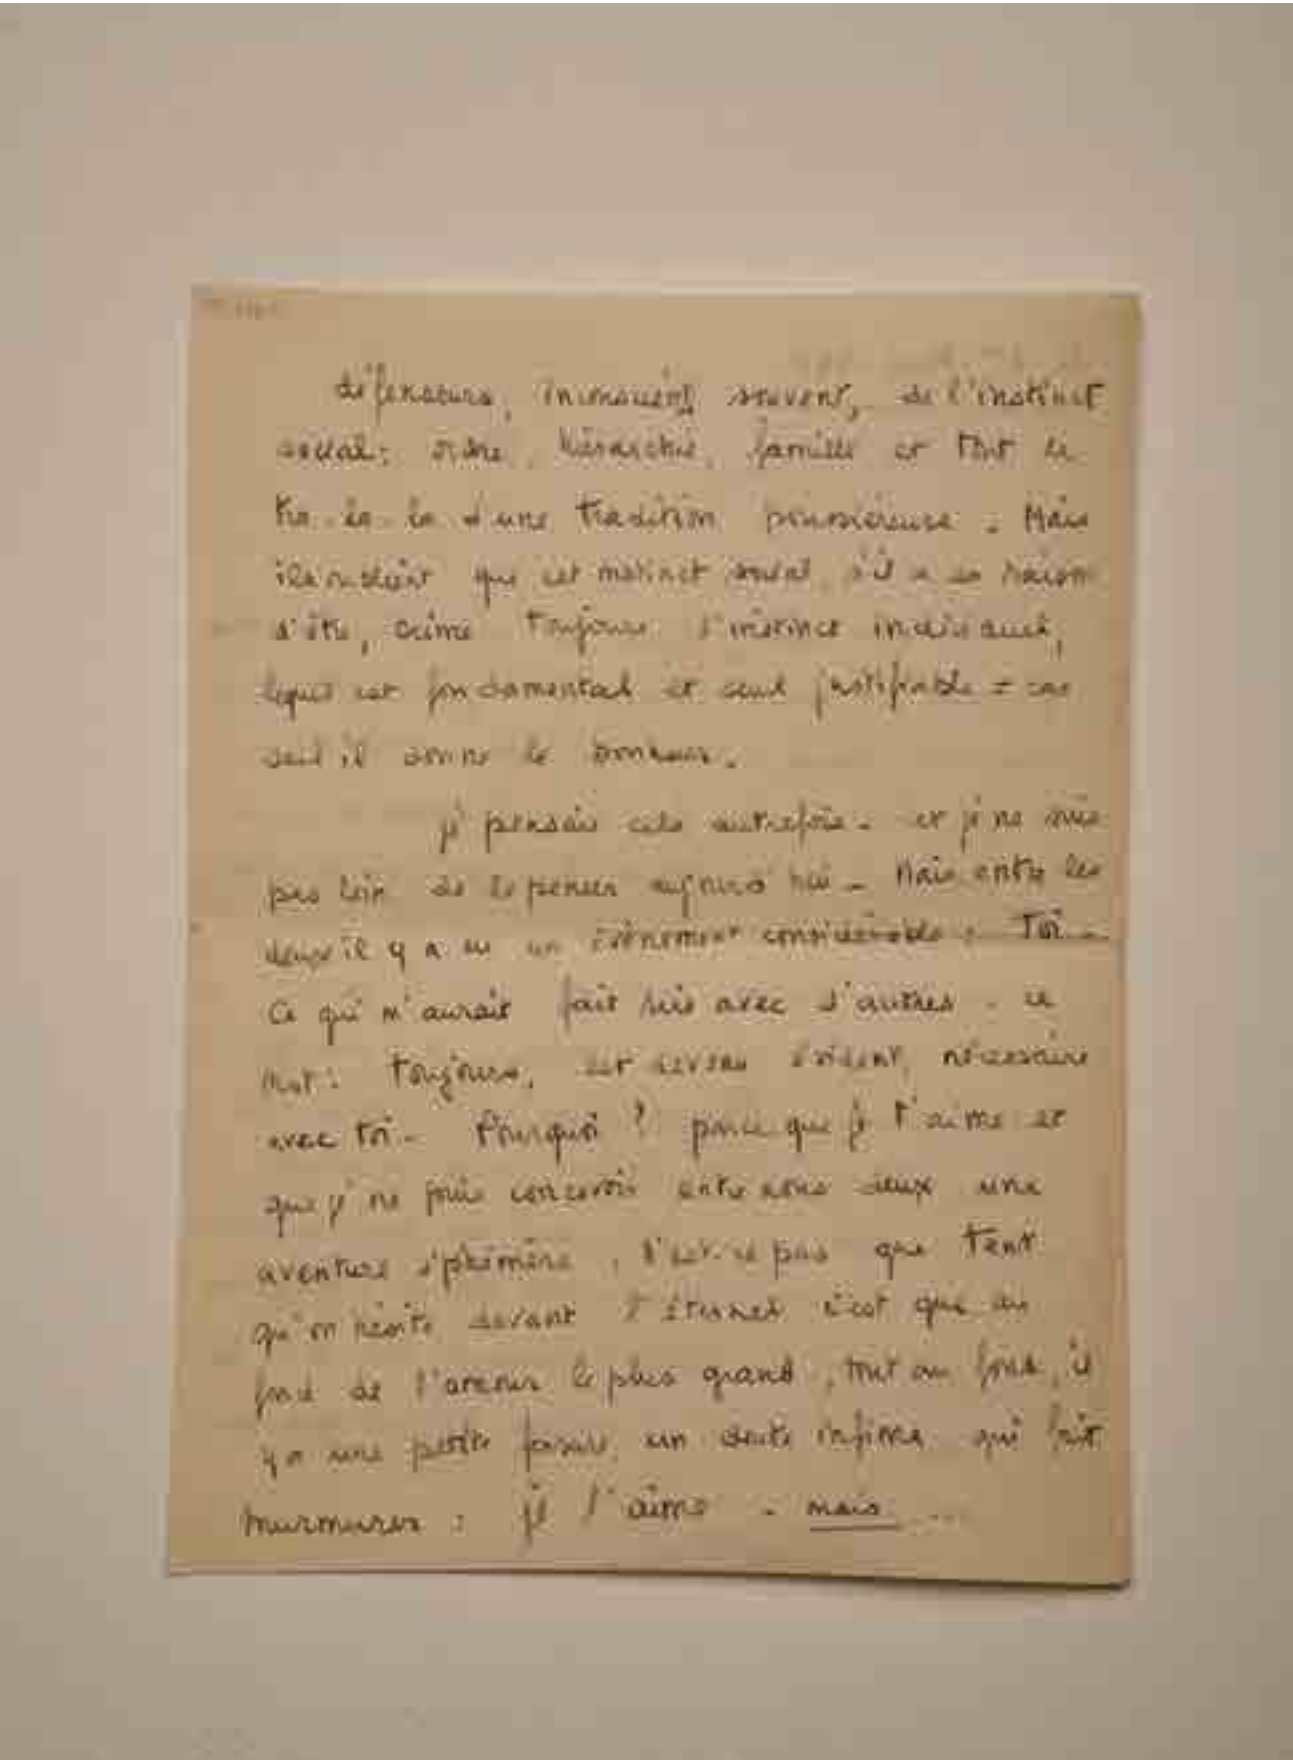 défenseurs, inconscients souvent, de l'instinct
social : ordre, hiérarchie, famille et tout le
tra la la d'une tradition poussiéreuse. Mais
ils oublient que cet instinct social, s'il a sa raison
d'être, brime toujours l'instinct individuel,
lequel est fondamental et seul justifiable = car
seul il donne le bonheur.
je pensais cela autrefois - et je ne suis
pas loin de le penser aujourd'hui - Mais entre les
deux il y a eu un évènement considérable : Toi -
Ce qui m'aurait fait rire avec d'autres - ce
mot : toujours, est devenu évident, nécessaire
avec toi - Pourquoi ? parce que je t'aime et
que je ne puis concevoir entre nous deux une
aventure éphémère, n'est-ce pas que tant
qu'on hésite devant l'éternel c'est que au
fond de l'avenir le plus grand, tout au fond, il
y a une petite fissure, un doute infime qui fait
murmurer : je l'aime - mais ...